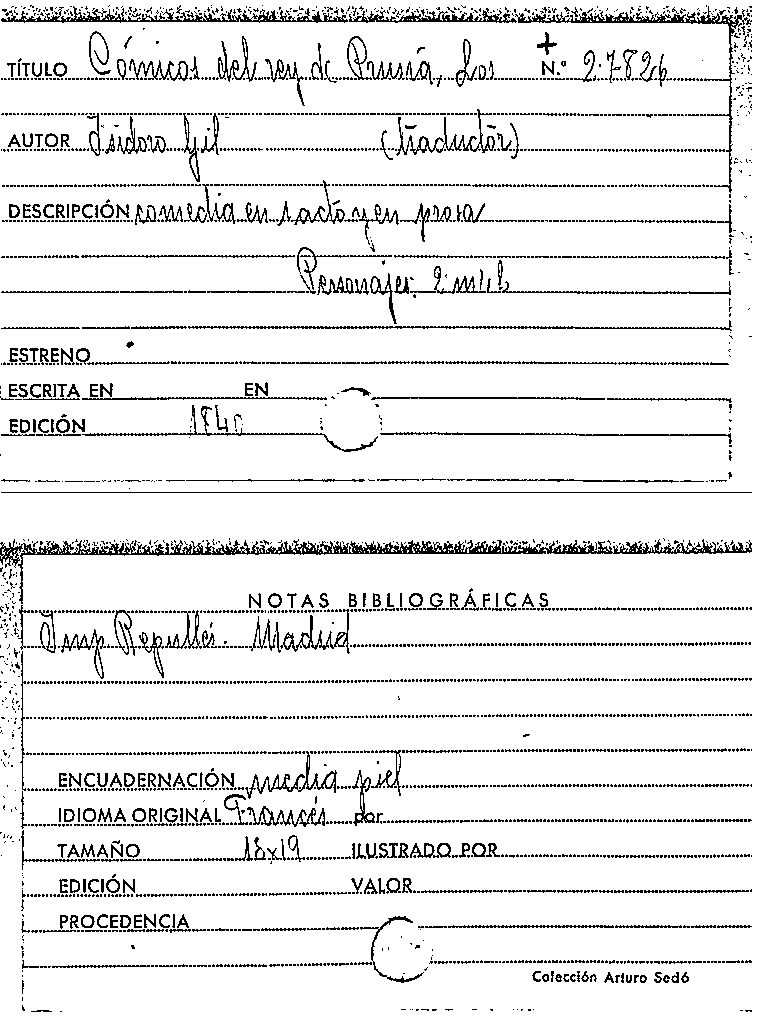 TÍTULO Cómicos del rey de Prusia, Los + N.º 2.7826
AUTOR Isidoro Gil (traductor)
DESCRIPCIÓN comedia en 1 acto y en prosa
Personajes: 2 m 4 h
ESTRENO
ESCRITA EN EN
EDICIÓN 1840
NOTAS BIBLIOGRÁFICAS
Imp Repullés. Madrid
ENCUADERNACIÓN media piel
IDIOMA ORIGINAL Francés por
TAMAÑO 18x19 ILUSTRADO POR
EDICIÓN VALOR
PROCEDENCIA
Colección Arturo Sedó